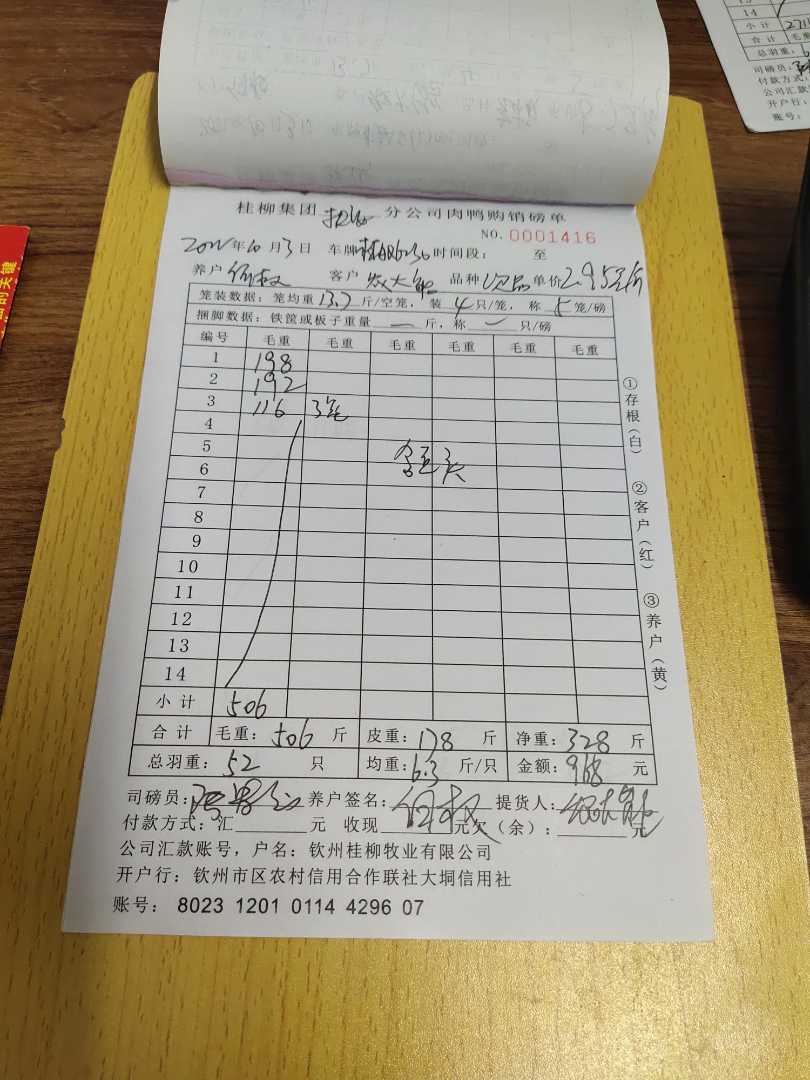 桂柳集团 分公司肉鸭购销磅单
NO. 0001416
年10月3日 车牌 时间段： 至
养户 客户 品种 单价2.95元/斤
笼装数据：笼均重13.7斤/空笼，装4只/笼，称5笼/磅
捆脚数据：铁筐或板子重量 一 斤，称 一 只/磅
编号 毛重 毛重 毛重 毛重 毛重 毛重
1 198
2 192
3 116 3笼
4
5
6
7
8
9
10
11
12
13
14
小计 506
合计 毛重：506斤 皮重：178斤 净重：328斤
总羽重：52只 均重：6.3斤/只 金额：968元
司磅员： 养户签名： 提货人：
付款方式：汇 元 收现 元欠（余）： 元
公司汇款账号，户名：钦州桂柳牧业有限公司
开户行：钦州市区农村信用合作联社大垌信用社
账号：8023 1201 0114 4296 07
①存根（白）
②客户（红）
③养户（黄）
14
小计
合计 毛重
总羽重：
司磅员：
付款方式：
公司汇款
开户行：
账号：